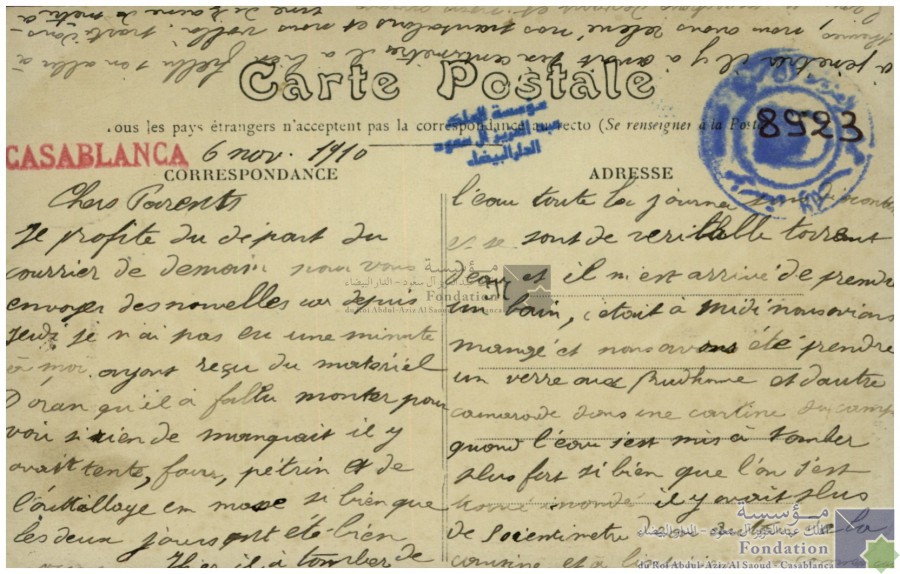 Carte Postale
ous les pays étrangers n'acceptent pas la correspondance au recto (Se renseigner à la Poste
8923
مؤسسة الملك
عبد العزيز آل سعود
الدار البيضاء
CASABLANCA
6 nov. 1910
CORRESPONDANCE
ADRESSE
Chers Parents
Je profite du départ du
courrier de demain pour vous
envoyer des nouvelles car depuis
Jeudi je n'ai pas eu une minute
à moi ayant reçu du matériel
D'oran qu'il à fallu monter pour
voir si rien de manquait il y
avait tente, four, pétrin et de
l'outillage en masse si bien que
les deux jours ont été bien
Hier il à tomber de
l'eau toute la journée
sont de veritable torrent
d'eau et il m'est arrivé de prendre
un bain, c'etait à midi nous avions
mangé et nous avons été prendre
un verre aux Prudhome et d'autre
camarade dans une cantine du camp
quand l'eau s'est mis à tomber
plus fort si bien que l'on s'est
inondé il y avait plus
de 50 centimetre la
cuisine et
مؤسسة
الملك عبد العزيز آل سعود - الدار البيضاء
Fondation
du Roi Abdul-Aziz Al Saoud - Casablanca
مؤسسة
الملك عبد العزيز آل سعود - الدار البيضاء
Fondation
du Roi Abdul-Aziz Al Saoud - Casablanca
nous avons relevé nos pantalons et nous voilà partis dans